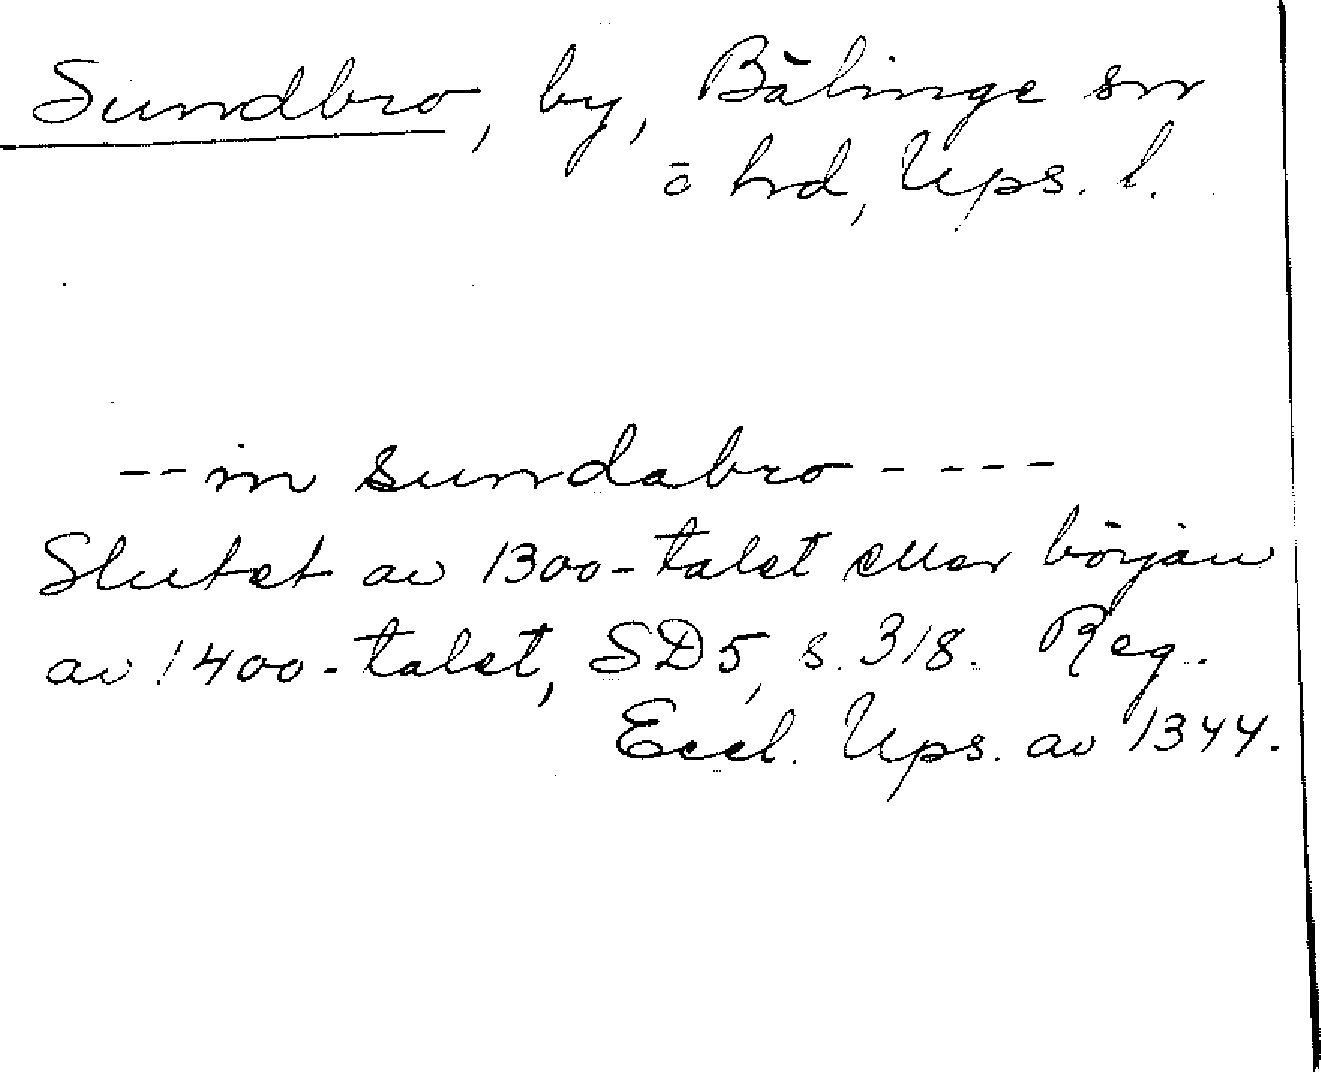 Sundbro, by, Bälinge sn
o hd, Ups. l.
-- in sundabro - - - -
Slutet av 1300-talet eller början
av 1400-talet, SD5, s. 318. Reg.
Eccl. Ups. av 1344.